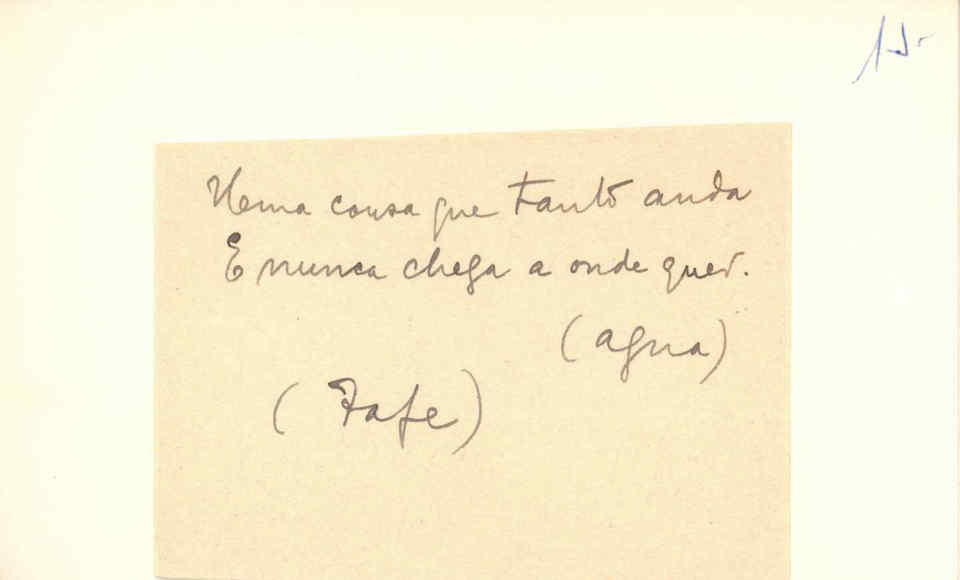 Uma cousa que tanto anda
E nunca chega a onde quer.
(agua)
(Fafe)